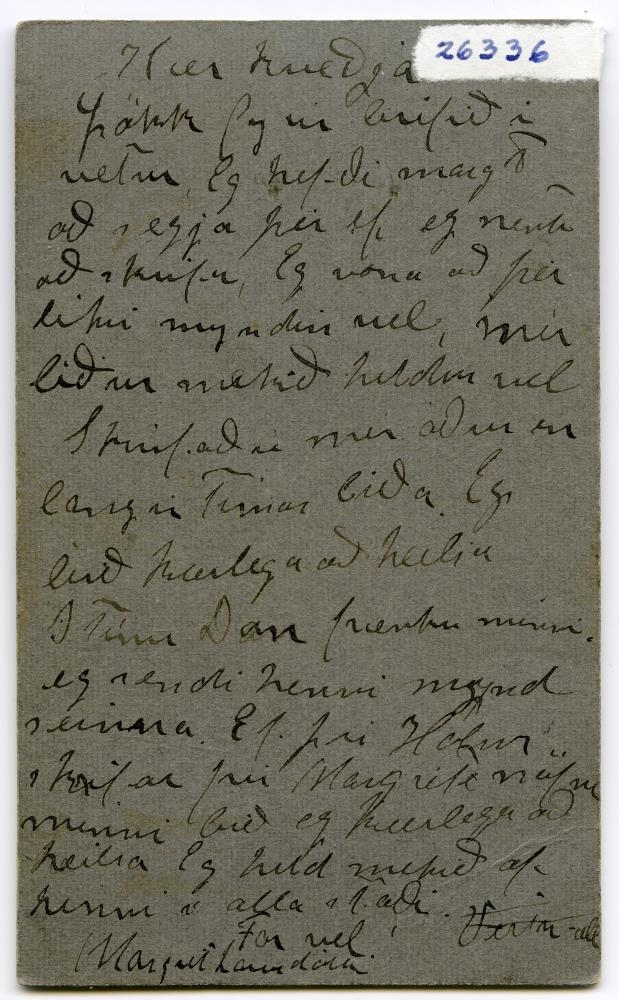 26336
Kær kveðja
þökk fyrir brifið i
vetur, Eg hefði margt
að segja þér ef eg nenti
að skrifa, Eg vona að þér
liki myndin vel, mér
liður mekið heldur vel
Skrifaðu mér áður en
langir Timar liða. Eg
bið kærlega að heilsa
Stinu Dan frænku minni.
eg sendi henni mynd
seinna. Ef þú Hólm
skrifar þú Margréte nöfnu
minni bið eg kærlega að
heilsa Eg held mekið af
henni i alla staði.
Far vel
Margret